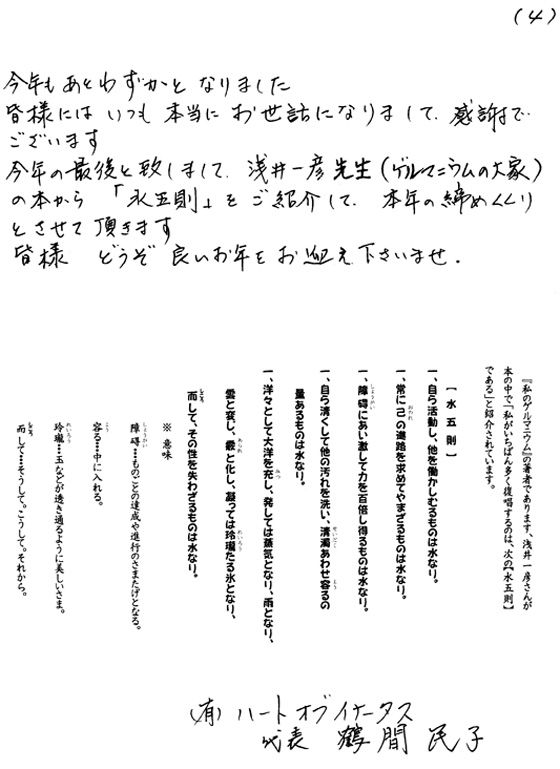 (4)
今年もあとわずかとなりました
皆様には いつも 本当に お世話になりまして、感謝で
ございます
今年の最後と致しまして、浅井一彦先生(ゲルマニウムの大家)
の本から 「水五則」をご紹介して、本年の締めくくり
とさせて頂きます
皆様 どうぞ 良いお年をお迎え下さいませ.
『私のゲルマニウム』の著者であります、浅井一彦さんが
本の中で「私がいちばん多く復唱するのは、次の【水五則】
である」と紹介されています。
【水五則】
一、自ら活動し、他を働かしむるものは水なり。
一、常に己の進路を求めてやまざるものは水なり。
一、障碍にあい激して力を百倍し得るものは水なり。
一、自ら清くして他の汚れを洗い、清濁あわせ容るの
量あるものは水なり。
一、洋々として大洋を充し、発しては蒸気となり、雨となり、
雲と変し、霰と化し、凝っては玲瓏たる氷となり、
而して、その性を失わざるものは水なり。
※ 意味
障碍…ものごとの達成や進行のさまたげとなる。
容る…中に入れる。
玲瓏…玉などが透き通るように美しいさま。
而して…そうして。こうして。それから。
(有)ハートオブイナータス
代表 鶴間民子